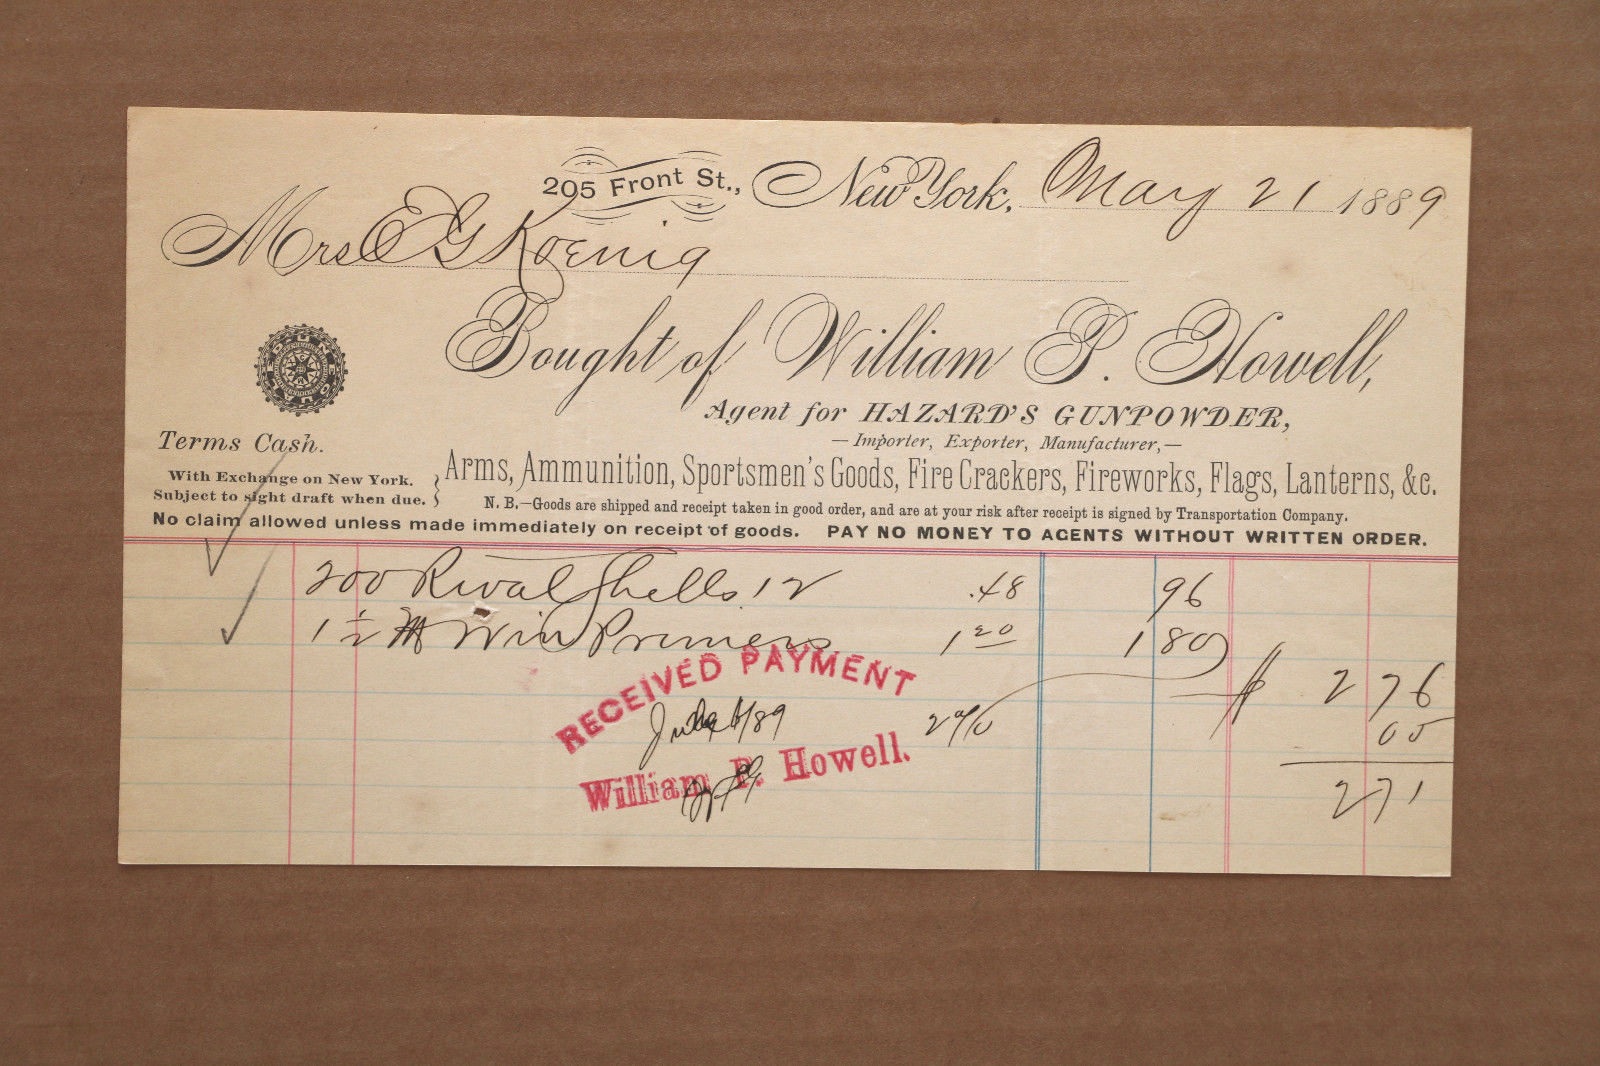 205 Front St., New York, May 21 1889
Mrs E G Koenig
Bought of William P. Howell,
Agent for HAZARD'S GUNPOWDER,
— Importer, Exporter, Manufacturer, —
Terms Cash.
With Exchange on New York.
Subject to sight draft when due.
Arms, Ammunition, Sportsmen's Goods, Fire Crackers, Fireworks, Flags, Lanterns, &c.
N. B.—Goods are shipped and receipt taken in good order, and are at your risk after receipt is signed by Transportation Company.
No claim allowed unless made immediately on receipt of goods. PAY NO MONEY TO AGENTS WITHOUT WRITTEN ORDER.
200 Rival Shells 12 .48 96
1 1/2 M Win Primers 1 20 1 80
$ 2 76
RECEIVED PAYMENT
/89
2 % 05
William P. Howell.
2 71